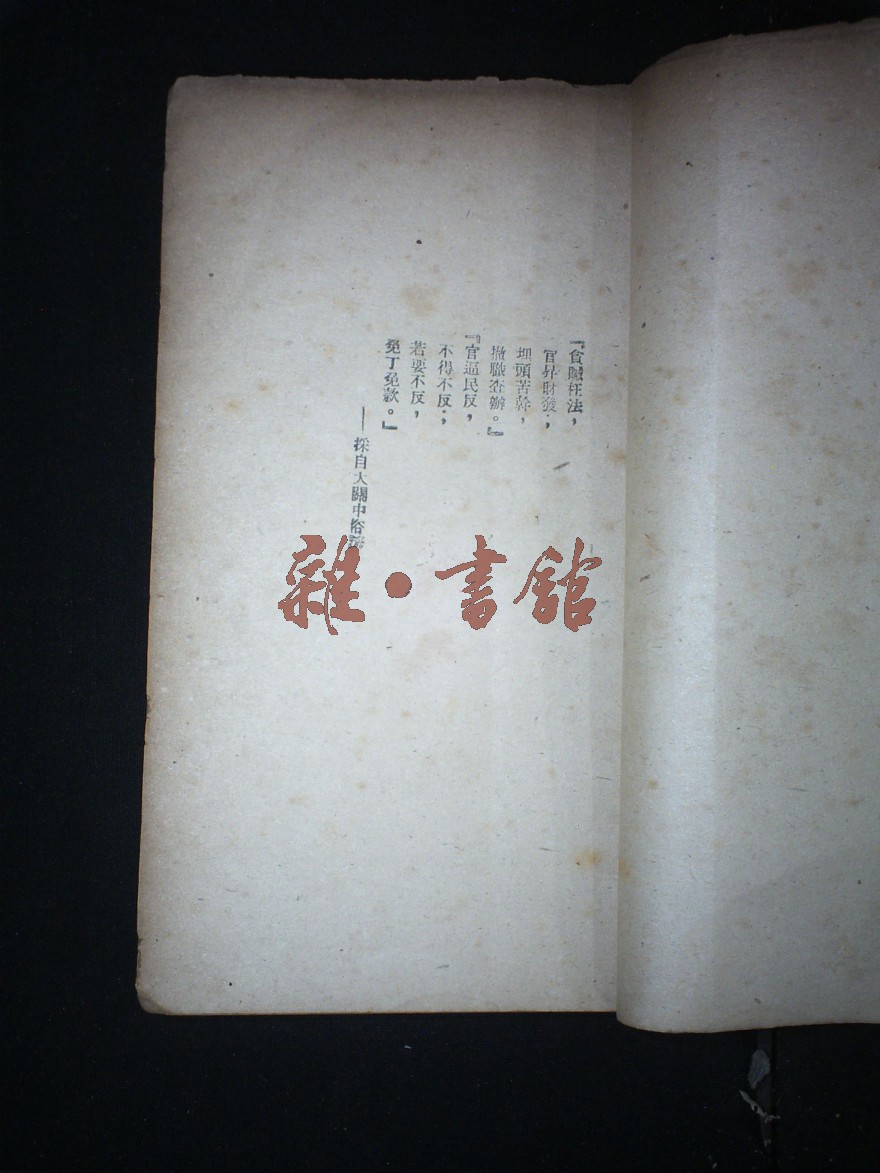 『貪贓枉法,
官昇財發;
埋頭苦幹,
撤職查辦。』
『官逼民反,
不得不反;
若要不反,
免丁免款。』
——採自大關中俗
雜•書舘